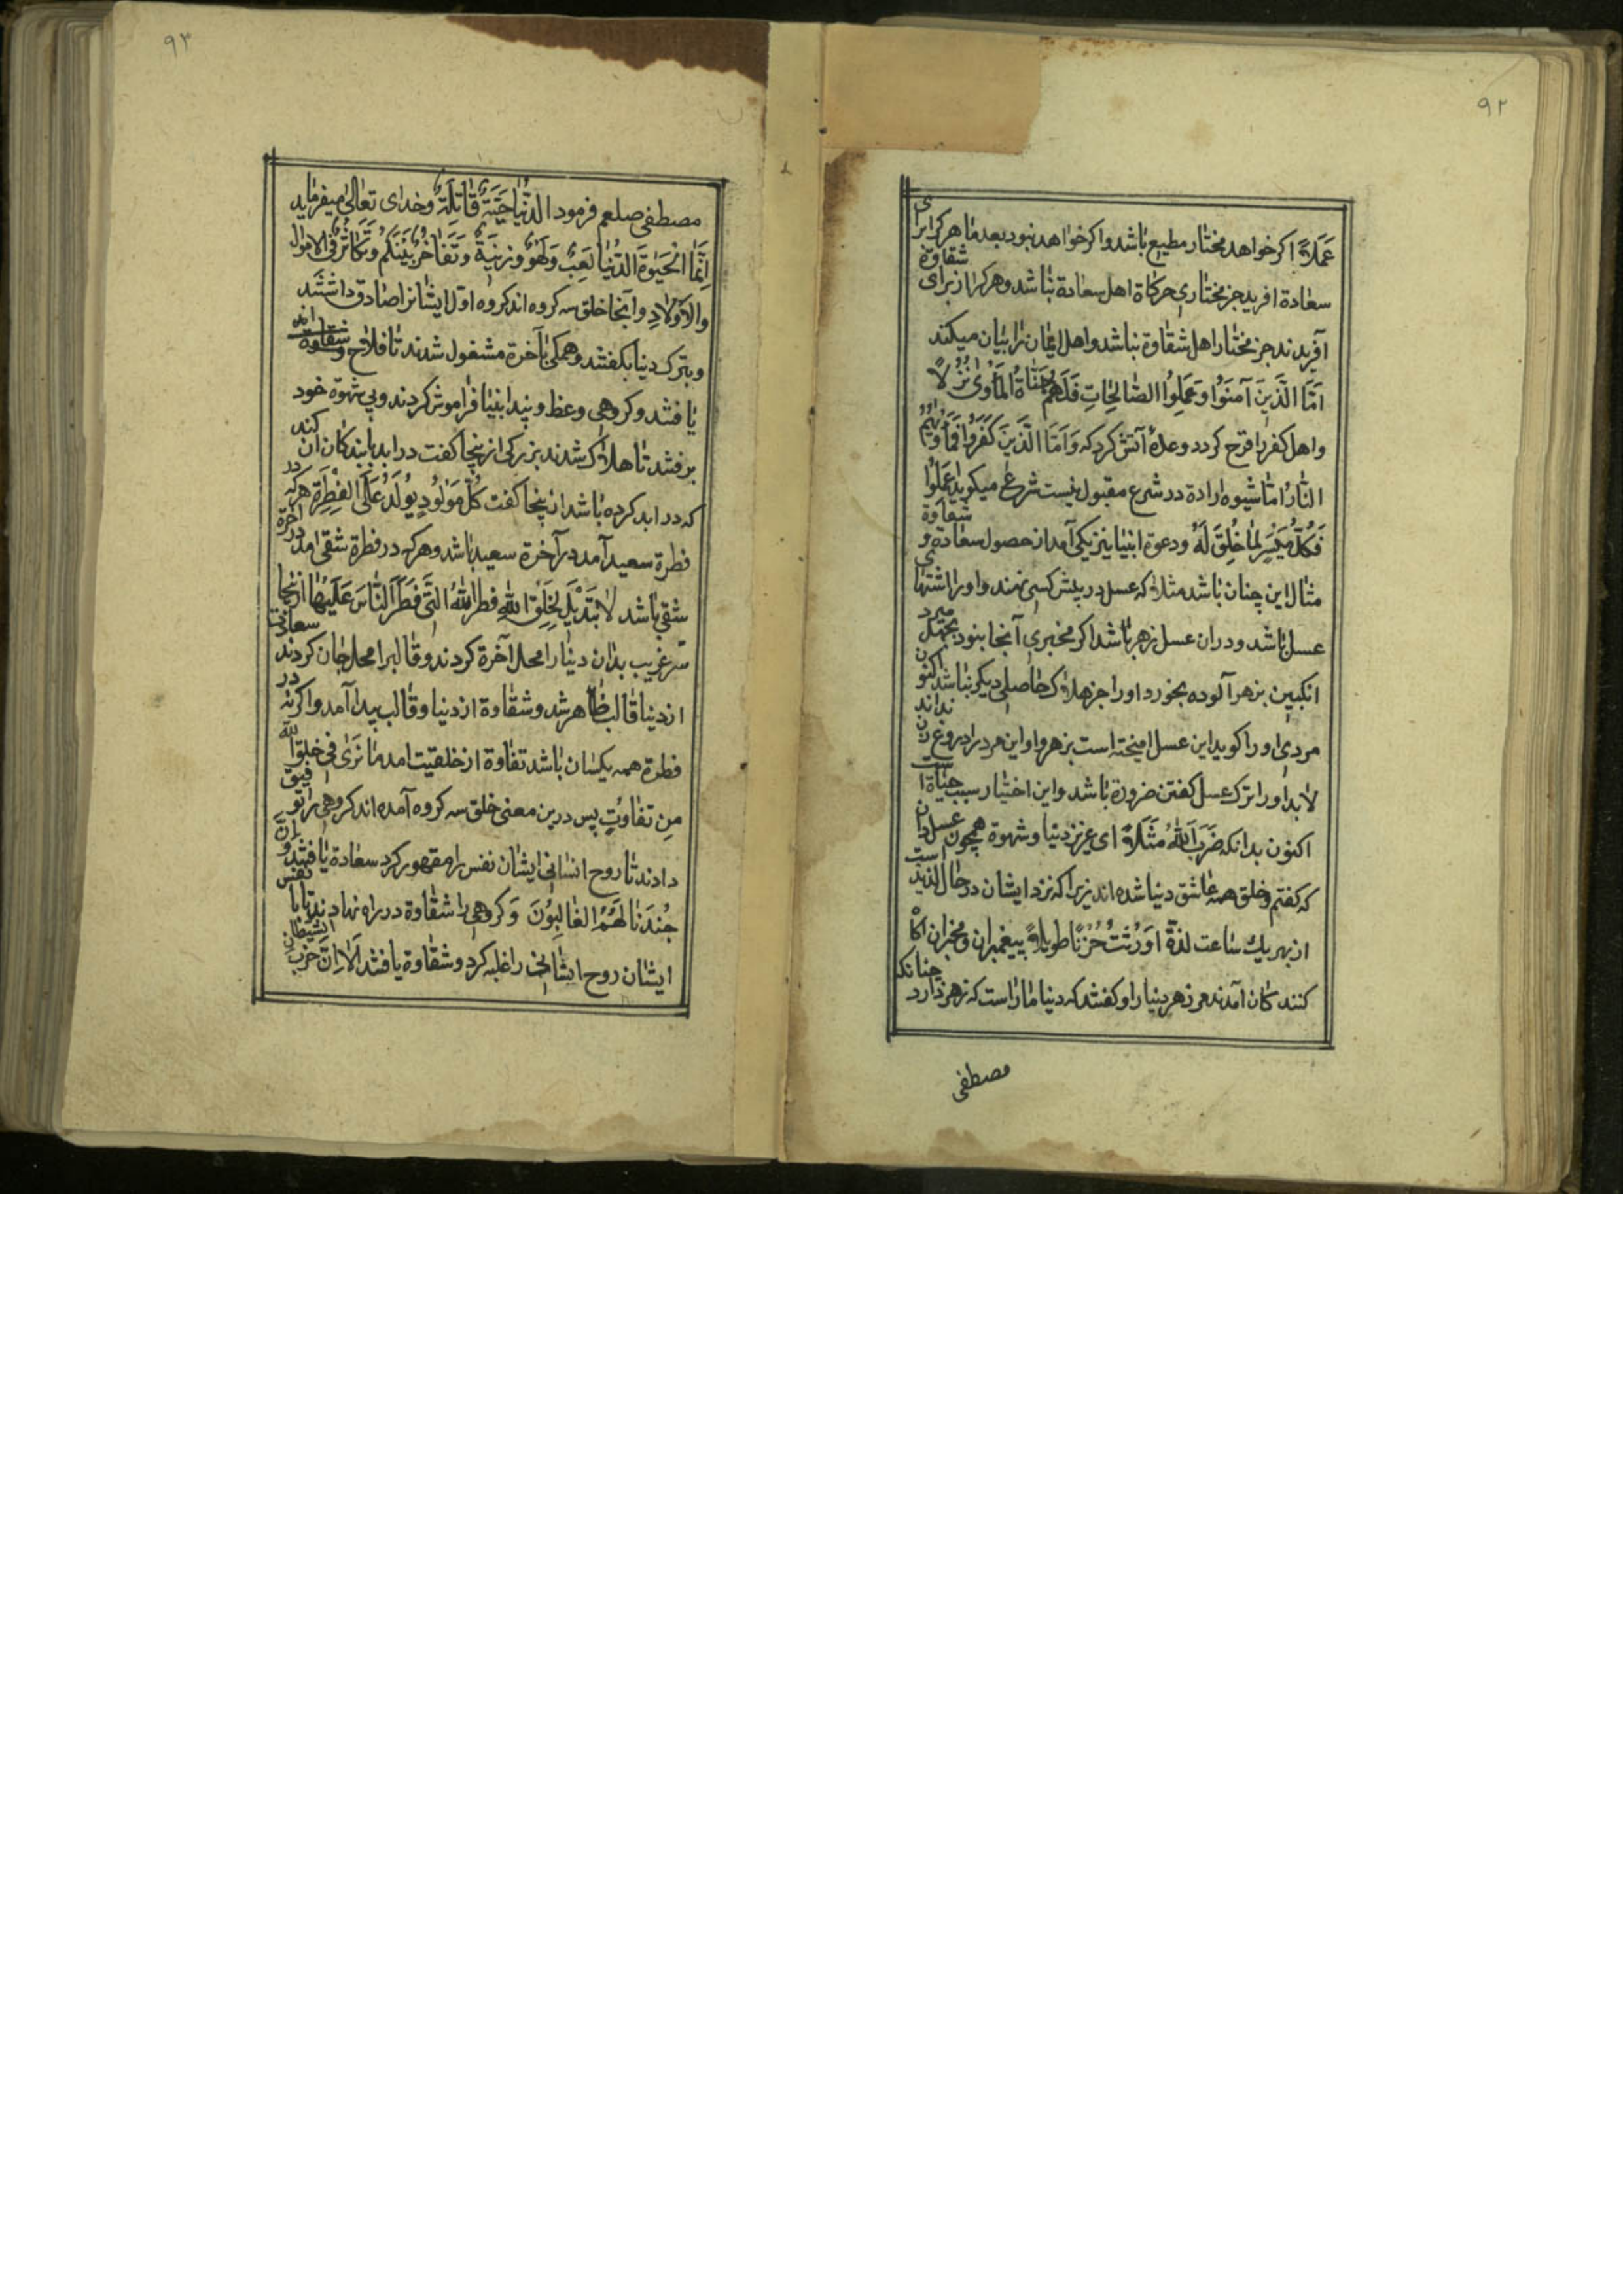 ۹۲
عَمَلاً اکر خواهد مختار مطیع باشد واکر خواهد نبود بعد ما هرکرا برای
سعادة افرید جز مختاری حرکاة اهل سعادة نباشد وهرکرا از برای شقاوة
آفریدند جز مختار اهل شقاوة نباشد واهل ایمان را بیان میکند
اَمَّا الَّذینَ آمَنَوُا وَعَمِلُوا الصّالِحٰاتِ فَلَهُم جَنّاةُ المَأوٰی نُزُلاً
واهل کفر را قرح کردد وعدهٔ آتش کرد که وَاَمَّا الَّذینَ کَفَرُوا فَمَأوٰیهُم
النّٰارُ امّا شیوه ارادة در شرع مقبول نیست شرع میکوید اعمَلُوا
فَکُلٌّ مُیَسَّرٍ لِمٰا خُلِقَ لَهُ ودعوة انبیا نیز یکی آمد از حصول سعادة وشقاوة
مثال این چنان باشد مثلا که عسل در پیش کسی نهند واورا اشتهای
عسل باشد ودران عسل زهر باشد اکر مخبری آنجا بنود بجهل میرد
انکبین بزهر آلوده بخورد اورا جز هلاک حاصلی دیکر نباشد اکنون
مردی اورا کوید این عسل امیخته است بزهر واو این مرد را دروغ زن نداند
لابد اورا ترک عسل کفتن ضرورة باشد واین اختیار سبب حیاة است
اکنون بدانکه ضَرَبَ اللهُ مَثَلاً ای عزیز دنیا وشهوة همچون عسل دان
که کفتم وخلق همه عاشق دنیا شده اند زیرا که نزد ایشان در حال لذیذ است
از بهر یک ساعت لذة اَوْرَثَتْ حُزْنًا طویلاً پیغمبران ومخبران آکاه
کنند کان آمدند مر زهر دنیا را وکفتند که دنیا مار است که زهر دارد چنانکه
مصطفی
۹۳
مصطفی صلعم فرمود الدُّنیا حَیَّةٌ قٰاتِلَةٌ وخدای تعالیٰ میفرماید
اِنَّمَا الْحَیٰوةَ الدُّنْیٰا لَعِبٌ وَلَهْوٌ وزینَةٌ وَتَفٰاخُرٌ بَیْنَکُم وَتَکٰاثُرٌ فی الاموٰال
والاَولادِ وآنجا خلق سه کروه اند کروه اوّل ایشانرا صادق داشتند
وبترک دنیا بکفتند وهمکی بآخرة مشغول شدند تا فلاح
یافتند وکروهی وعظ وپند انبیا فراموش کردند وپی شهوة خود
برفتند تا هلاک شدند بزرکی ازینجا کفت در ابد با بندکان ان کند
که در ابد کرده باشد ازینجا کفت کُلُّ مَوْلُودٍ یُولَدُ عَلَی الفِطْرَةِ هرکه در
فطرة سعید آمد در آخرة سعید باشد وهرکه در فطرة شقی امد در اخرة
شقی باشد لاٰ تَبْدیلَ لِخَلْقِ اللهِ فطرَاللهُ الّتی فَطَرَ النّٰاسَ عَلَیْهٰا ازینجا
سرّ غریب بدان دنیا را محل آخرة کردند وقالب را محل جان کردند سعادة
از دنیا قالب ظاهر شد وشقاوة از دنیا وقالب پیدا آمد واکرنه در
فطرة همه یکسان باشد تفاوة از خلقیت امد مٰا تَرٰی فی خلقِ الله
مِن تفاوُتٍ پس درین معنی خلق سه کروه آمده اند کروهی را توفیق
دادند تا روح انسانی ایشان نفس را مقهور کرد سعادة یافتند وَاِنَّ
جُنْدَنٰا لَهُمُ الغٰالِبُونَ وَکروهی را شقاوة در راه نهادند تا با نفس
ایشان روح انسانی را غلبه کرد وشقاوة یافتند اَلاٰ اِنَّ حزبَ الشیطانِ